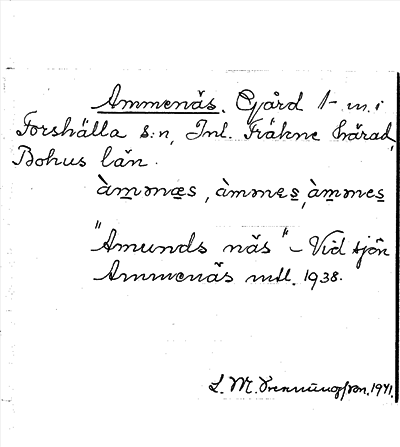 Ammenäs. Gård 1 m. i
Forshälla s:n, Inl. Fräkne härad,
Bohus län.
àm̲mæs, àmmes̲, àm̲mes̲
"Amunds näs" – Vid sjön
Ammenäs mtl. 1938.
L. M. 1941.